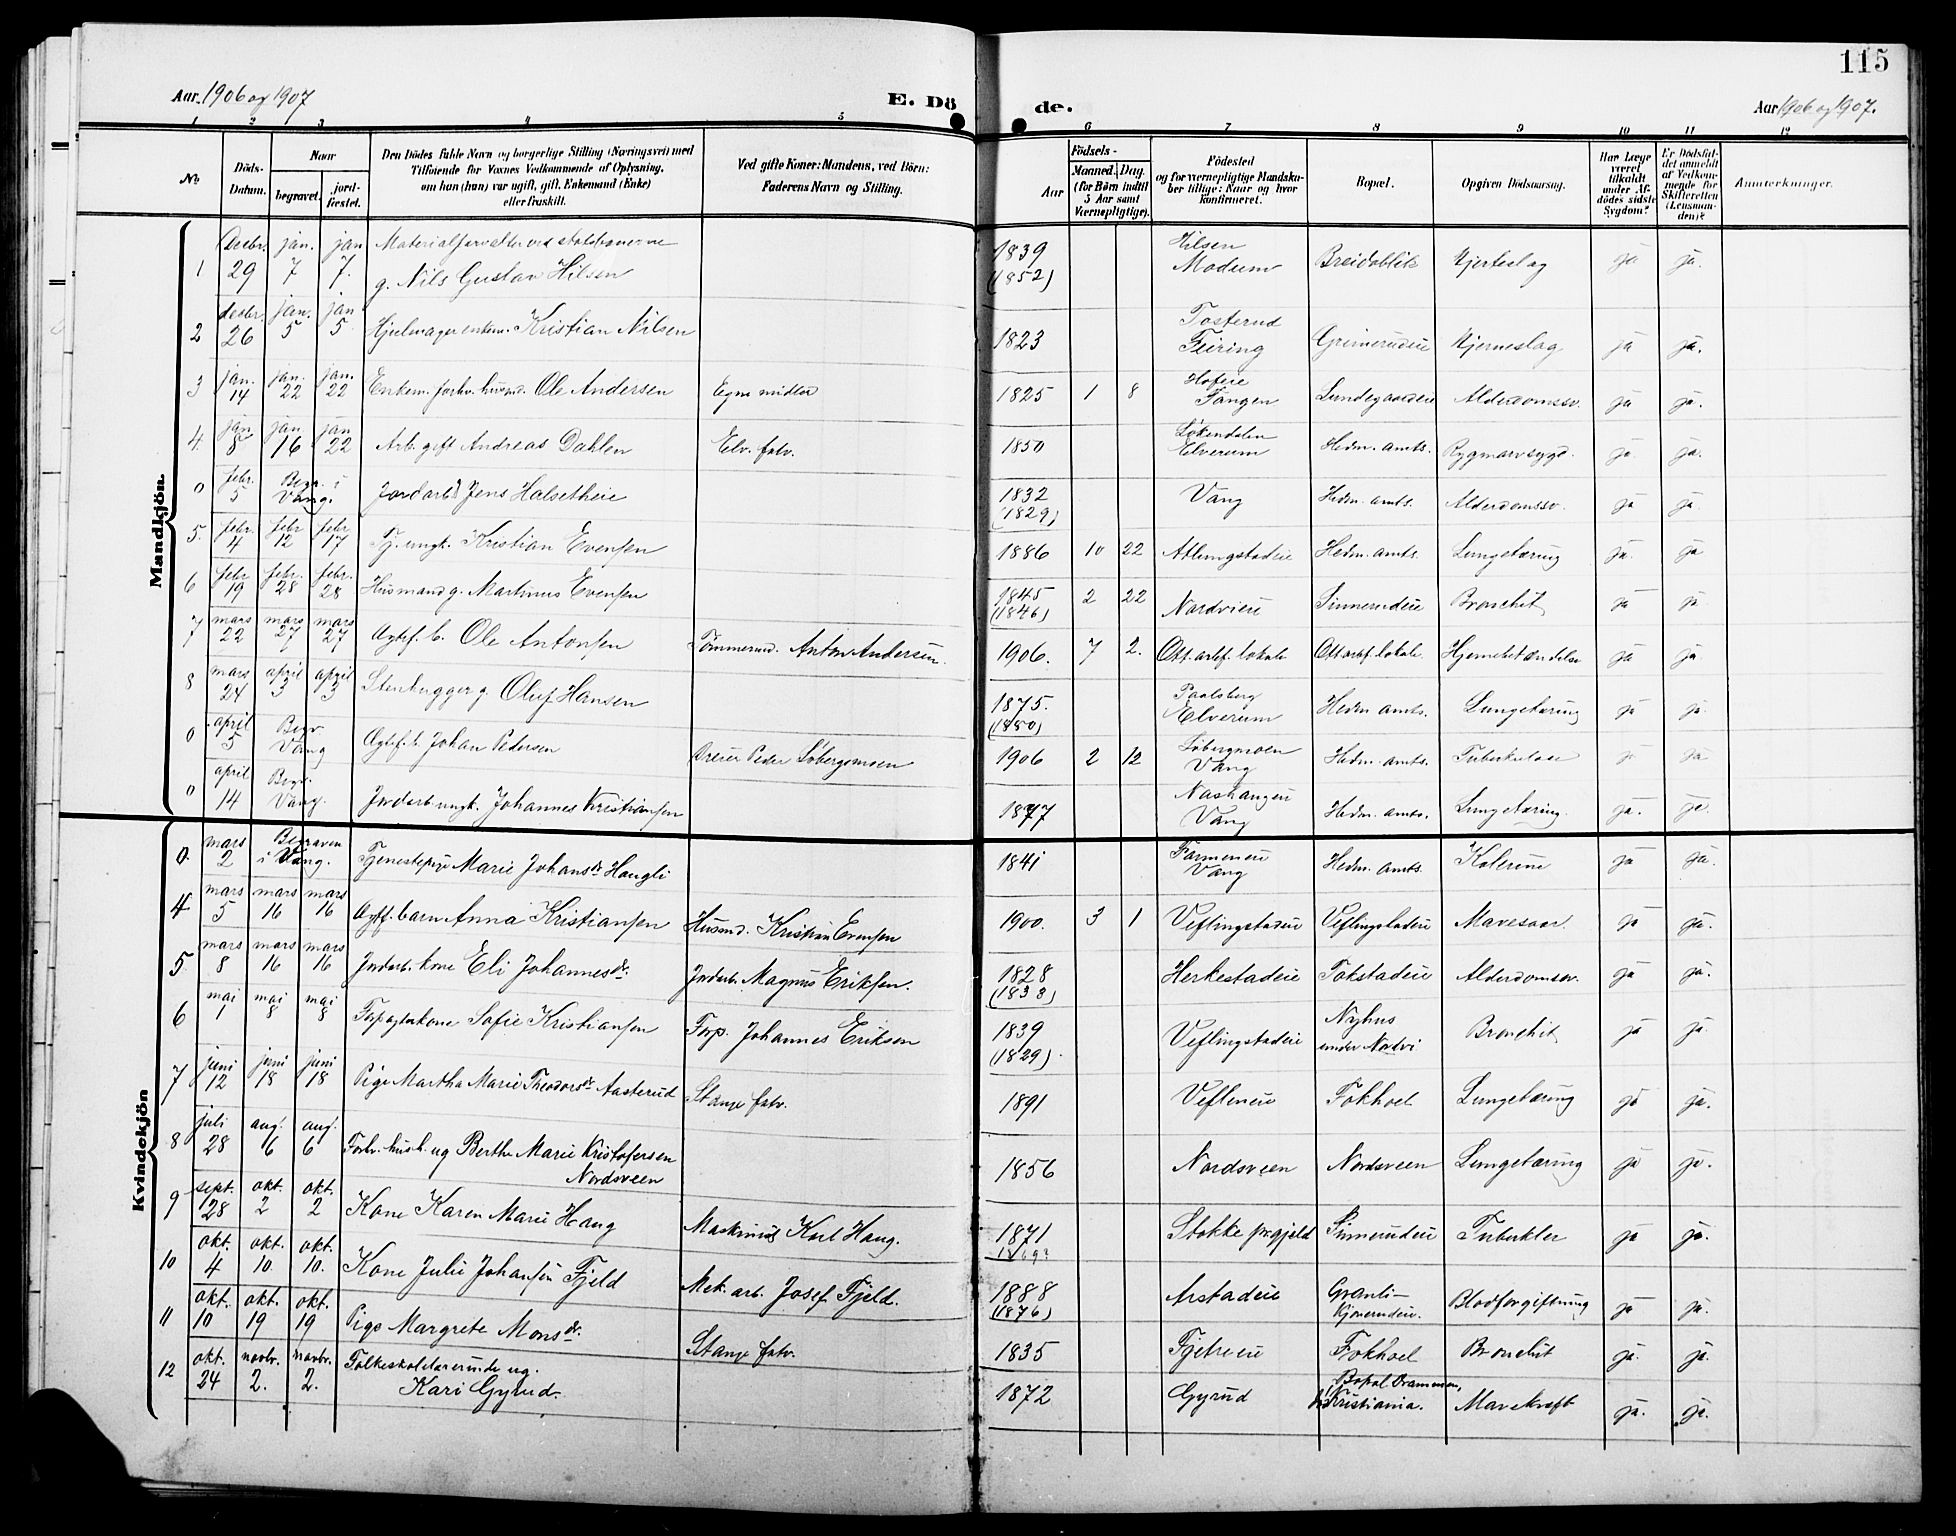 115
Aar. 1906 og 1907
E. Dö
de.
Aar 1906 og 1907.
1 2 3 4 5 6 7 8 9 10 11 12
No
Döds-Datum.
Naar
begravet.
jord-fæstet.
Den Dödes fulde Navn og borgerlige Stilling (Næringsvei) med
Tilföiende for Voxnes Vedkommende af Oplysning,
om han (hun) var ugift, gift, Enkemand (Enke)
eller fraskilt.
Ved gifte Koner: Mandens, ved Börn:
Faderens Navn og Stilling.
Födsels-
Aar
Maaned. Dag.
(for Börn indtil
5 Aar samt
Værnepligtige).
Födested
og for værnepligtige Mandska-
ber tillige: Naar og hvor
konfirmeret.
Bopæl.
Opgiven Dödsaarsag.
Har Læge
været
tilkaldt
under Af-
dödes sidste
Sygdom?
Er Dödsfal-
det anmeldt
af Vedkom-
mende for
Skifteretten
(Lensman-
den)?
Anmærkninger.
Mandkjön.
1 Decbr. 29 jan. 7 jan 7. Materialforvalter ved statsbanerne
g. Nils Gustav Hilsen 1839 (1852) Hilsen Modum Breidablik Hjerteslag ja ja.
2 decbr. 26 jan. 5 jan 5 Hjulmager enkem. Kristian Nilsen 1823 Tosterud Feiring Grimerudeie Hjerneslag ja ja.
3 jan. 14 jan. 22 jan. 22 Enkem. forhv. husmd. Ole Andersen Egne midler 1825 1 8 Hofeie Tangen Lundegaardeie Alderdomssv. ja ja.
4. jan. 8 jan. 16 jan. 22 Arb. gift Andreas Dahlen Elv. fatv. 1850 Løkendalen Elverum Hedm. amts. Rygmarvsygd. ja. ja.
0 febr. 5 Begr. i Vang. Jordarb. Jens Halsetheie 1832 (1829) Vang Hedm. amts. Alderdomssv. ja ja
5. febr. 4 febr 12 febr 17 Tj. ungk. Kristian Evensen 1886 10 22 Atlungstadeie Hedm. amts. Lungetæring ja. ja
6 febr. 19 febr. 28 febr. 28 Husmand g. Martinus Evensen 1845 (1846) 2 22 Nordvieie Sinnerudeie Bronchit ja ja
7 mars 22 mars 27 mars 27 Ægtef. b. Ole Antonsen Tømmermd. Anton Andersen. 1906. 7 2. Ottarlef. lokale Ottarlef. lokale. Hjernebetændelse ja ja.
8 mars 24 april 3 april 3 Stenhugger g. Oluf Hansen 1875. (1880) Paalsberg Elverum Hedm amts. Lungetæring ja ja.
0 april 5 Begr Vang Ægtef. b. Johan Pedersen Dreier Peder Løbergsmoen 1906 2 12 Løbergmoen Vang Hedm. amts. Tuberkulose ja ja
0 april 14 Begr. Vang. Jordarb. ungk. Johannes Kristiansen 1877 Vang Hedm. amts. Lungetæring. ja. ja.
Kvindekjön
0. mars 2 Begraven i Vang. Tjenestepige Marie Johansdr Haugli 1841 Farmeneie Vang Hedm. amts. Kolerine ja ja.
4 mars 5 mars 16 mars 16 Ægtf. barn Anna Kristiansen Husmd. Kristian Evensen 1900. 3 1 Veflingstadeie Veflingstadeie Mavesaar. ja ja.
5 mars 8 mars 16 mars 16 Jordarb. kone Eli Johannesdr. Jordarb. Magnus Eriksen. 1828 (1838) Herkestadeie Fokstadeie Alderdomssv. ja ja.
6 mai 1 mai 8 mai 8 Forpagterkone Sofie Kristiansen Forp. Johannes Eriksen 1839 (1829). Veflingstadeie Nyhus under Nordvi Bronchit ja ja.
7 juni 12 juni 18 juni 18 Pige Martha Marie Theodorsdr Aasterud Stange fatv. 1891 Vefleneie Fokhoel Lungetæring ja ja.
8 juli 28 aug. 6 aug. 6 Forhv. hush. ug Berthe Marie Kristofersen
Nordsveen 1856 Nordsveen Nordsveen Lungetæring ja ja.
9 sept. 28 okt. 2 okt. 2 Kone Karen Marie Haug Maskinist Karl Haug. 1871 1869? Stokke prgjeld Sinnerudeie Tuberkler ja ja.
10 okt. 4 okt. 10. okt. 10. Kone Julie Johansen Fjeld Mek. arb. Josef Fjeld. 1888 (1876) Arstadeie Granli- Kjonerudeie. Blodforgiftning ja ja.
11 okt. 10 okt. 19 okt. 19 Pige Margrete Monsdr. Stange fatv. 1835 Tjetreeie Fokhoel Bronchit ja. ja.
12 okt. 24 novbr. 2. novbr. 2. Folkeskolelærerinde ug.
Kari Gyrud. 1872 Gyrud Bopæl Drammen, Kristiania. Mavekræft ja. ja.